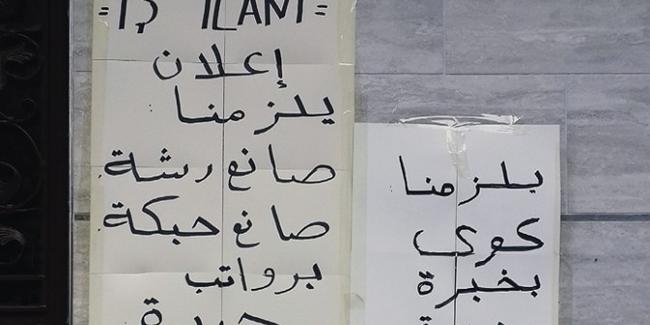 =İŞ İLANI=
إعلان
يلزمنا
صانع رشة
صانع حبكة
برواتب
جيدة
يلزمنا
كوى
بخبرة